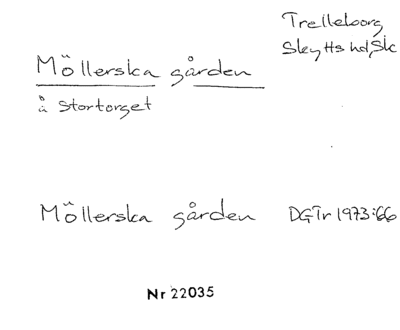 Trelleborg
Skytts hd, Sk
Möllerska gården
å Stortorget
Möllerska gården DGTr 1973:66
Nr 22035